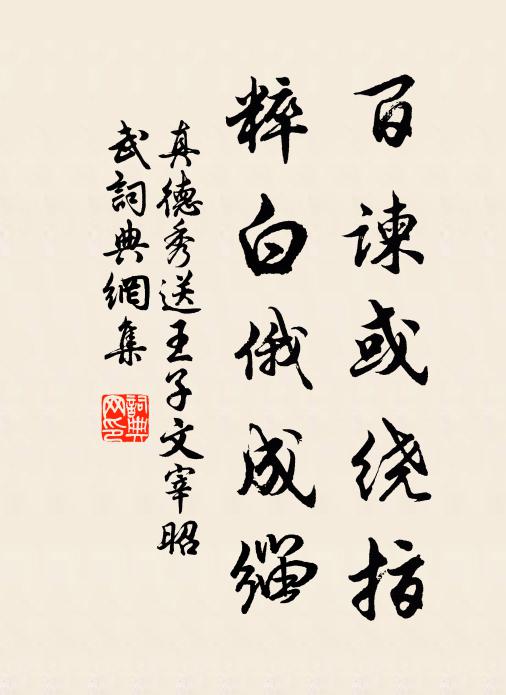 百谏或绕指
粹白俄成缁
真德秀送王子文宰昭
武詞典網集
詞典
网印